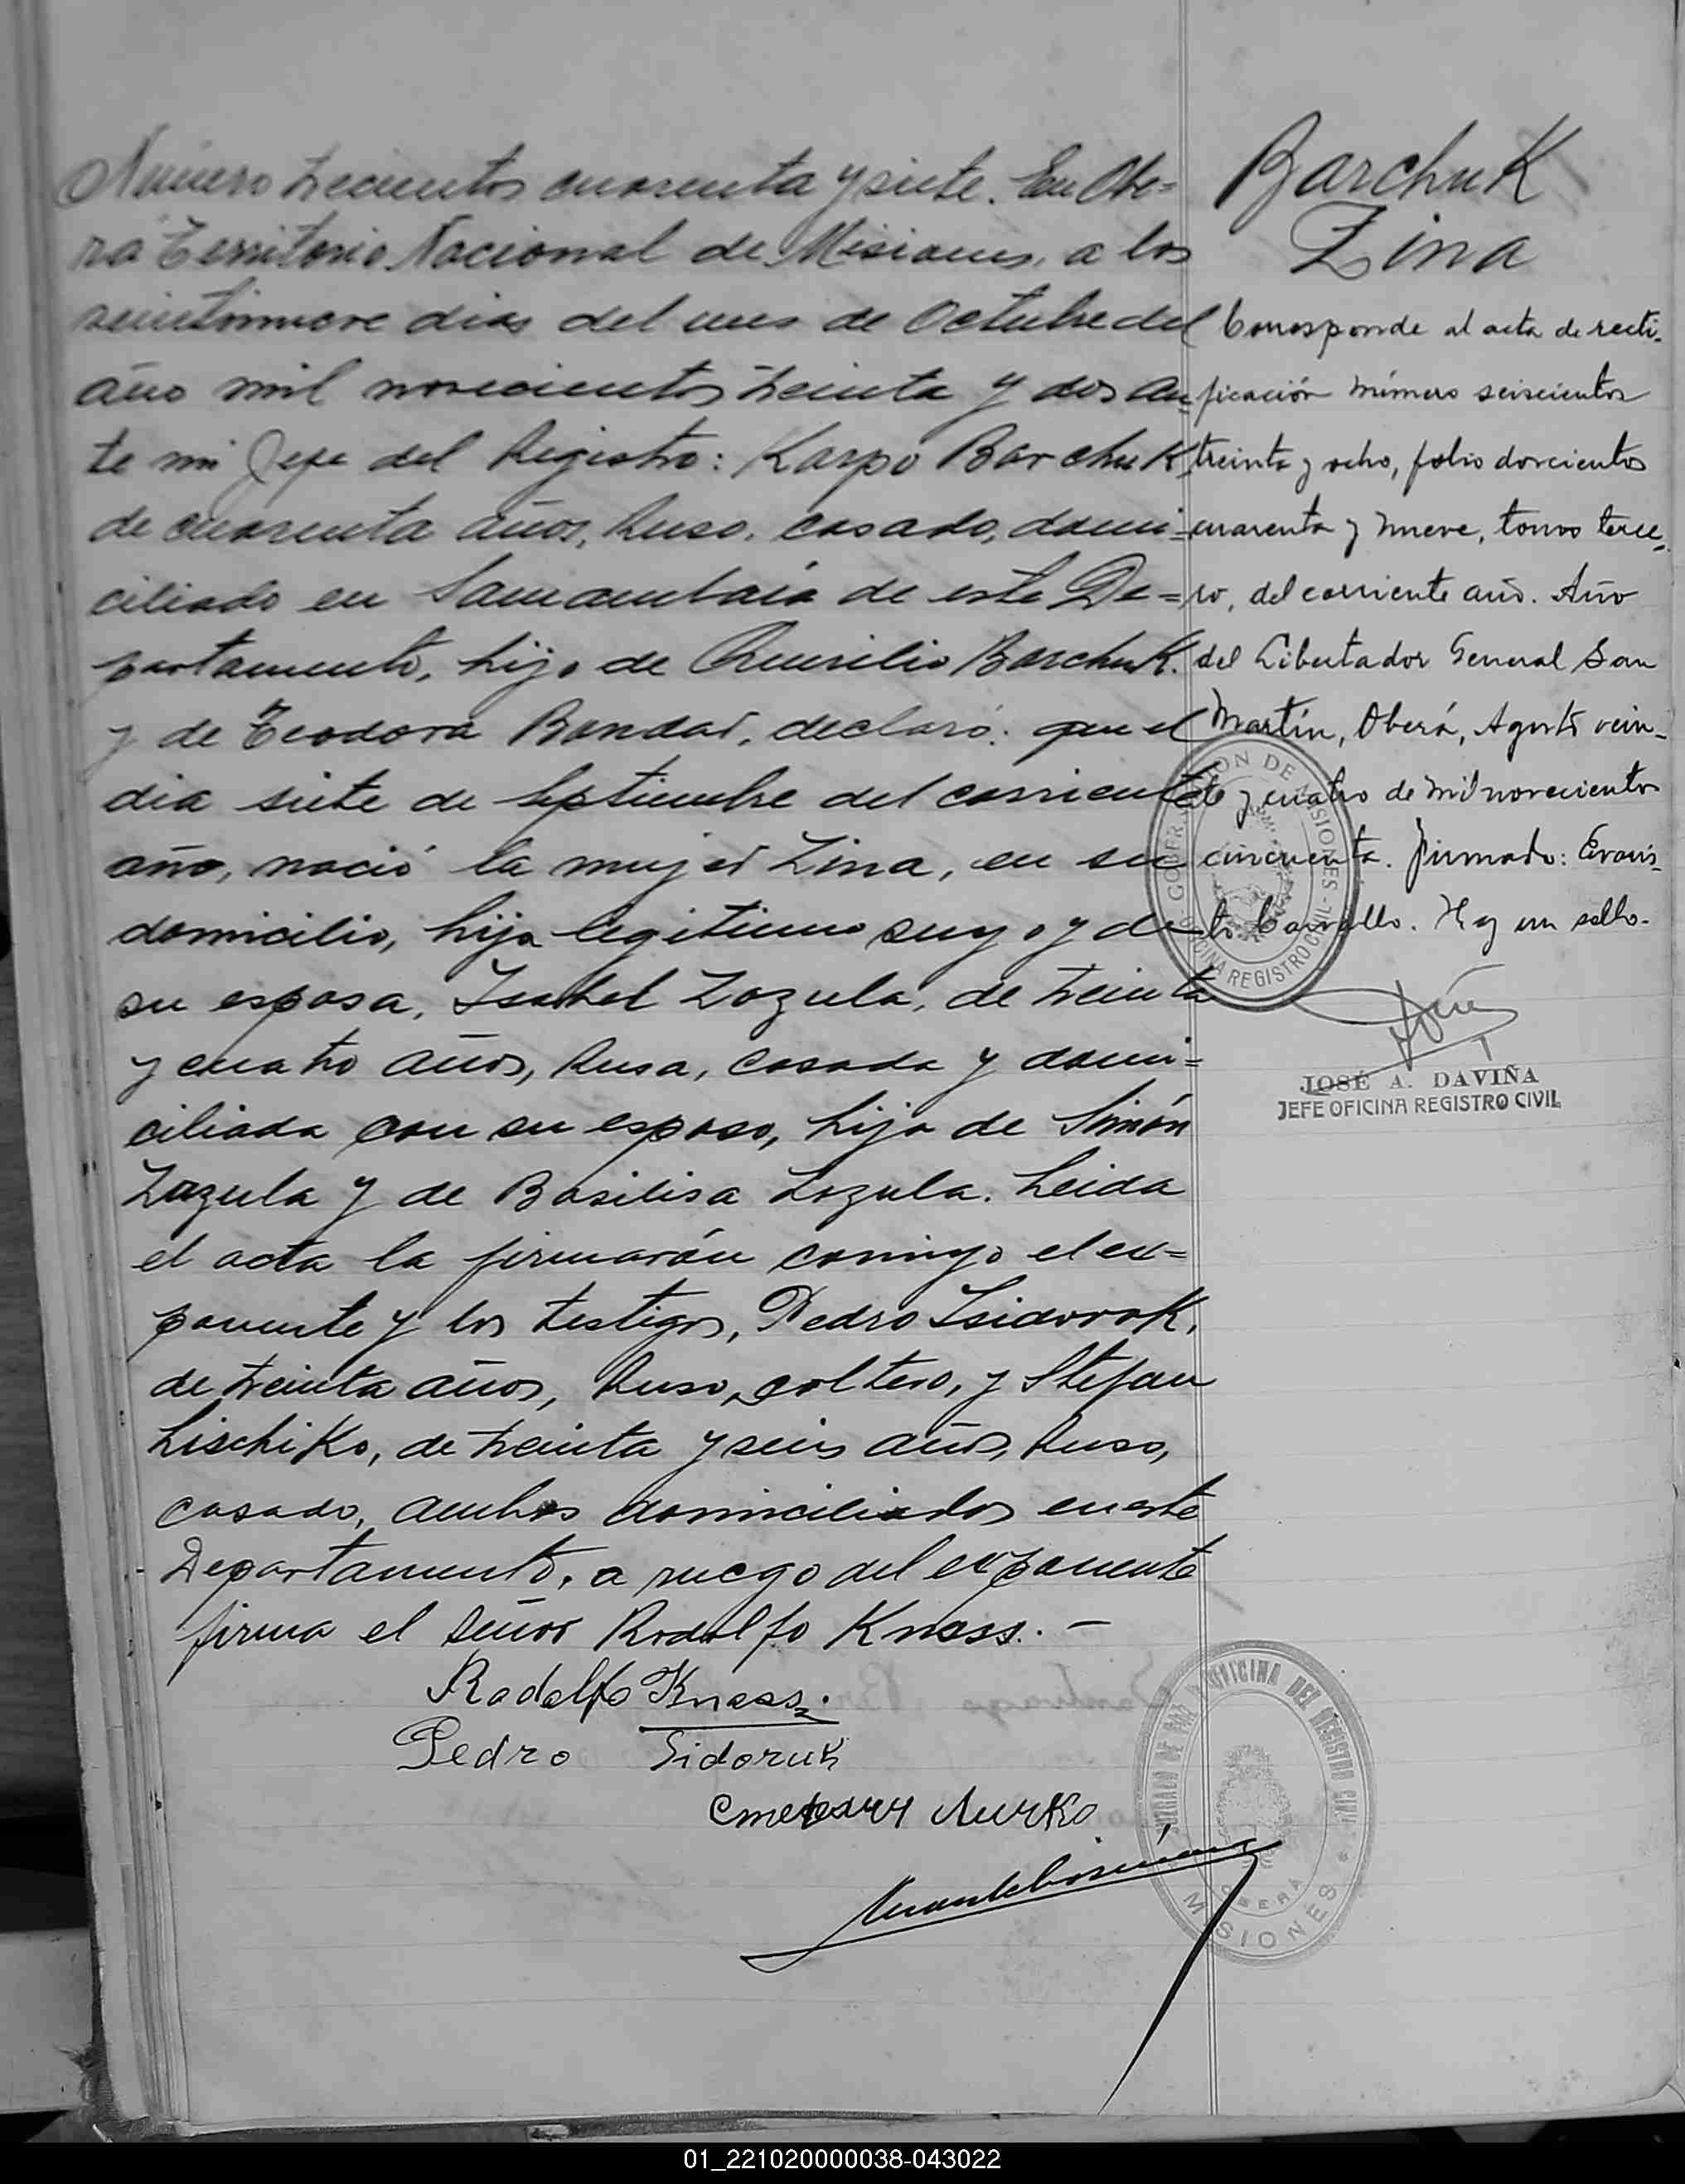 Número trecientos cuarenta y siete. En Obe=
rá Territorio Nacional de Misiones, a los
veintinueve dias del mes de Octubre del
año mil novecientos treinta y dos an=
te mi Jefe del Registro: Karpo Barchuk
de cuarenta años, Ruso, casado, domi=
ciliado en Samambaia de este De=
partamento, hijo de Barchuk.
y de Teodora Bondar, declaró: que el
dia siete de Septiembre del corriente
año, nació la mujer Zina, en su
domicilio, hija legitima suya y de
su esposa, Isabel Zozula, de treinta
y cuatro años, Rusa, casada y domi=
ciliada con su esposo, hija de Simón
Zozula y de Basilisa Zozula. Leida
el acta la firmarón conmigo el ex=
ponente y los testigos, Pedro Isidorok,
de treinta años, Ruso, soltero, y Stefan
Lischiko, de treinta y seis años, Ruso,
casado, ambos domiciliados en este
Departamento, a ruego del exponente
firma el señor Rodolfo Knass. –
Rodolfo Knass.
Pedro Sidoruk
Barchuk
Zina
Corresponde al acta de recti-
ficación número seiscientos
treinta y ocho, folio doscientos
cuarenta y nueve, tomo terce-
ro, del corriente año. Año
del Libertador General San
Martín, Oberá, Agosto vein-
te y cuatro de mil novecientos
cincuenta. Firmado: Evaris-
to Carvallo. Hay un sello.
JOSÉ A. DAVIÑA
JEFE OFICINA REGISTRO CIVIL
GOBERNACION DE MISIONES - OFICINA REGISTRO CIVIL
JUZGADO DE PAZ Y OFICINA DEL REGISTRO CIVIL
OBERÁ
MISIONES
01_221020000038-043022